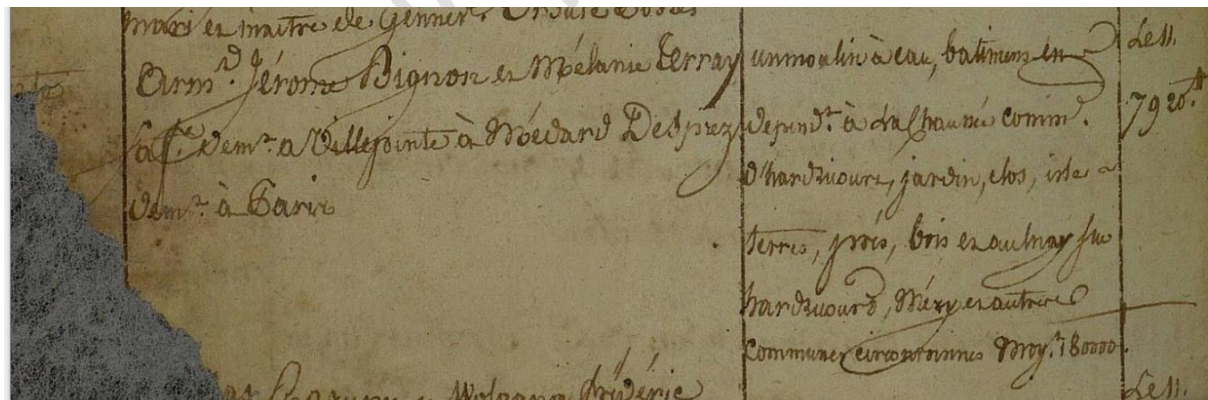 mari et maitre de Genner. Ursule
Arm.d Jérome Bignon et Mélanie Terray
sa fe. dem.t a Villepinte à Médard Desprez
dem.t à Paris
un moulin à eau, batimens en
depend.t à la Chaumée comm.
d'hardivours, jardin, clos, isle
terres, prés, bois et aulnay sur
hardivours, Méry et autres
communes circonvoinnes moy.t 180000.
Le 11.
7920.tt
Frédéric
Le 11.